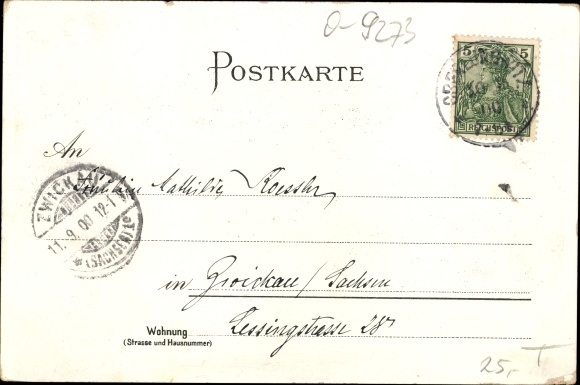 O-9273
5 5
REICHSPOST
POSTKARTE
An
Fräulein Mathilde Roessler
ZWICKAU
11. 9. 00. 12-1
*(SACHSEN) 1c
in Zwickau / Sachsen
Wohnung
(Strasse und Hausnummer)
Lessingstrasse 28
25,-
T